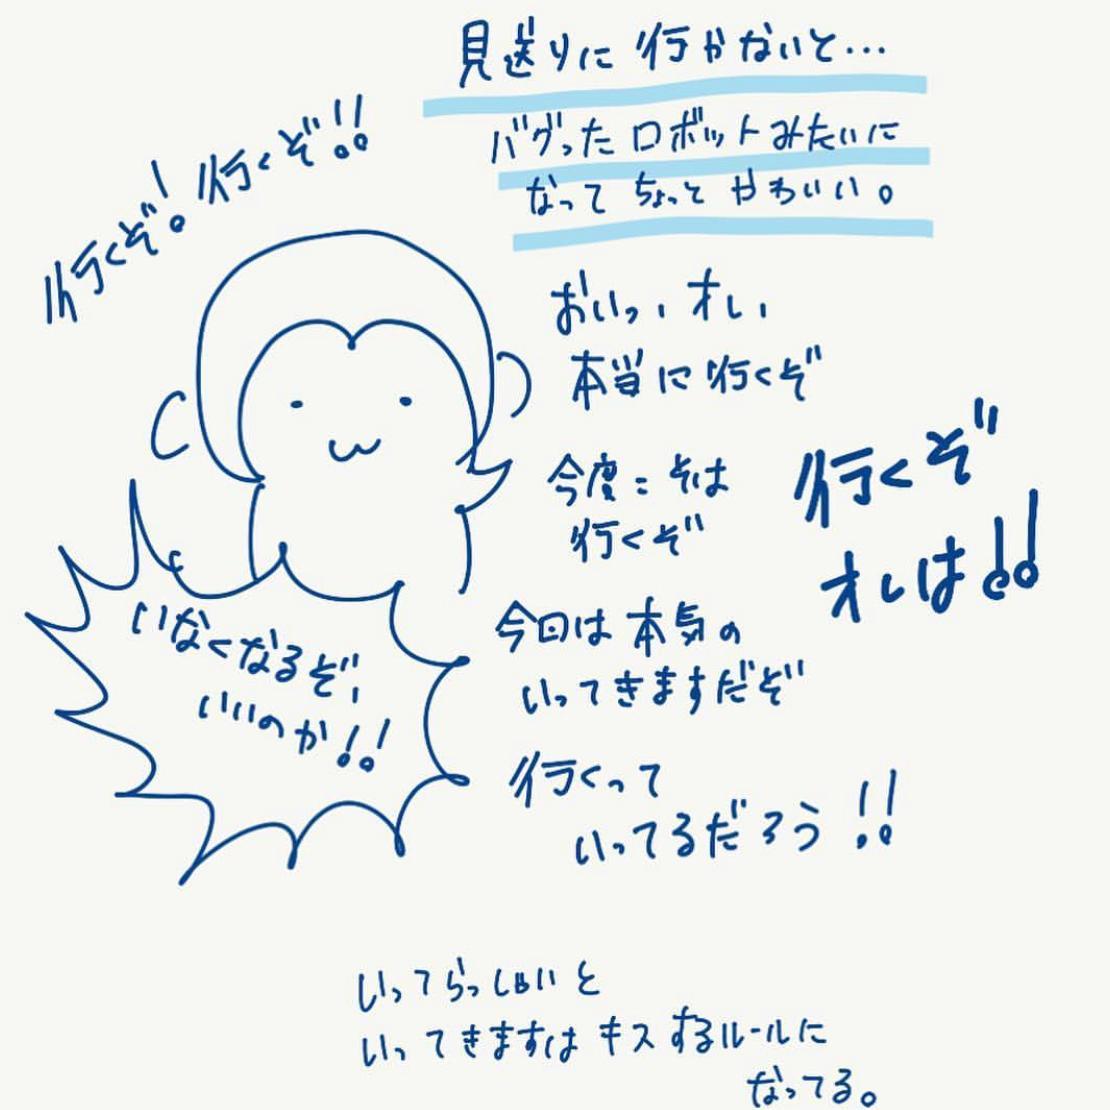 見送りに行かないと…
バグったロボットみたいに
なってちょっとかわいい。
行くぞ!行くぞ!!
おいっ、オレ、
本当に行くぞ
今度こそは
行くぞ
行くぞ
オレは!!
今回は本気の
いってきますだぞ
行くって
いってるだろう!!
いなくなるぞ、
いいのか!!
いってらっしゃいと
いってきますはキスするルールに
なってる。